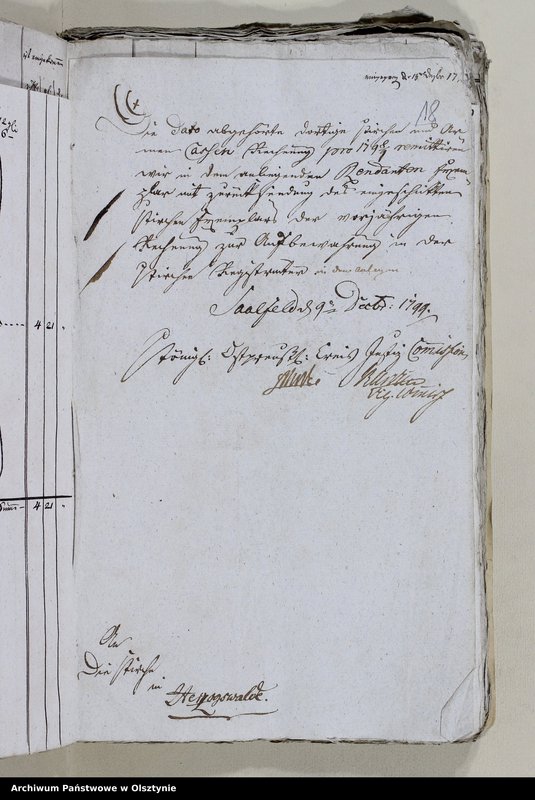 eingegang. d. 18 Decbr 17
18
Die dato abgehörte dortige Kirchen und Ar
men Cassen Rechnung pro 1798/9 remittiren
wir in dem anliegenden Rendanten Exem
plar mit Zurücksendung des eingeschickten
Kirchen Exemplars der vorjährigen
Rechnung zur Aufbewahrung in der
Kirchen Registratur in dem
Saalfeld d 9 Decbr: 1799.
Königl: Ostpreuß: Creis Justiz Commission
An
Die Kirche
in
Herzogswalde.
4 21
4 21
Archiwum Państwowe w Olsztynie